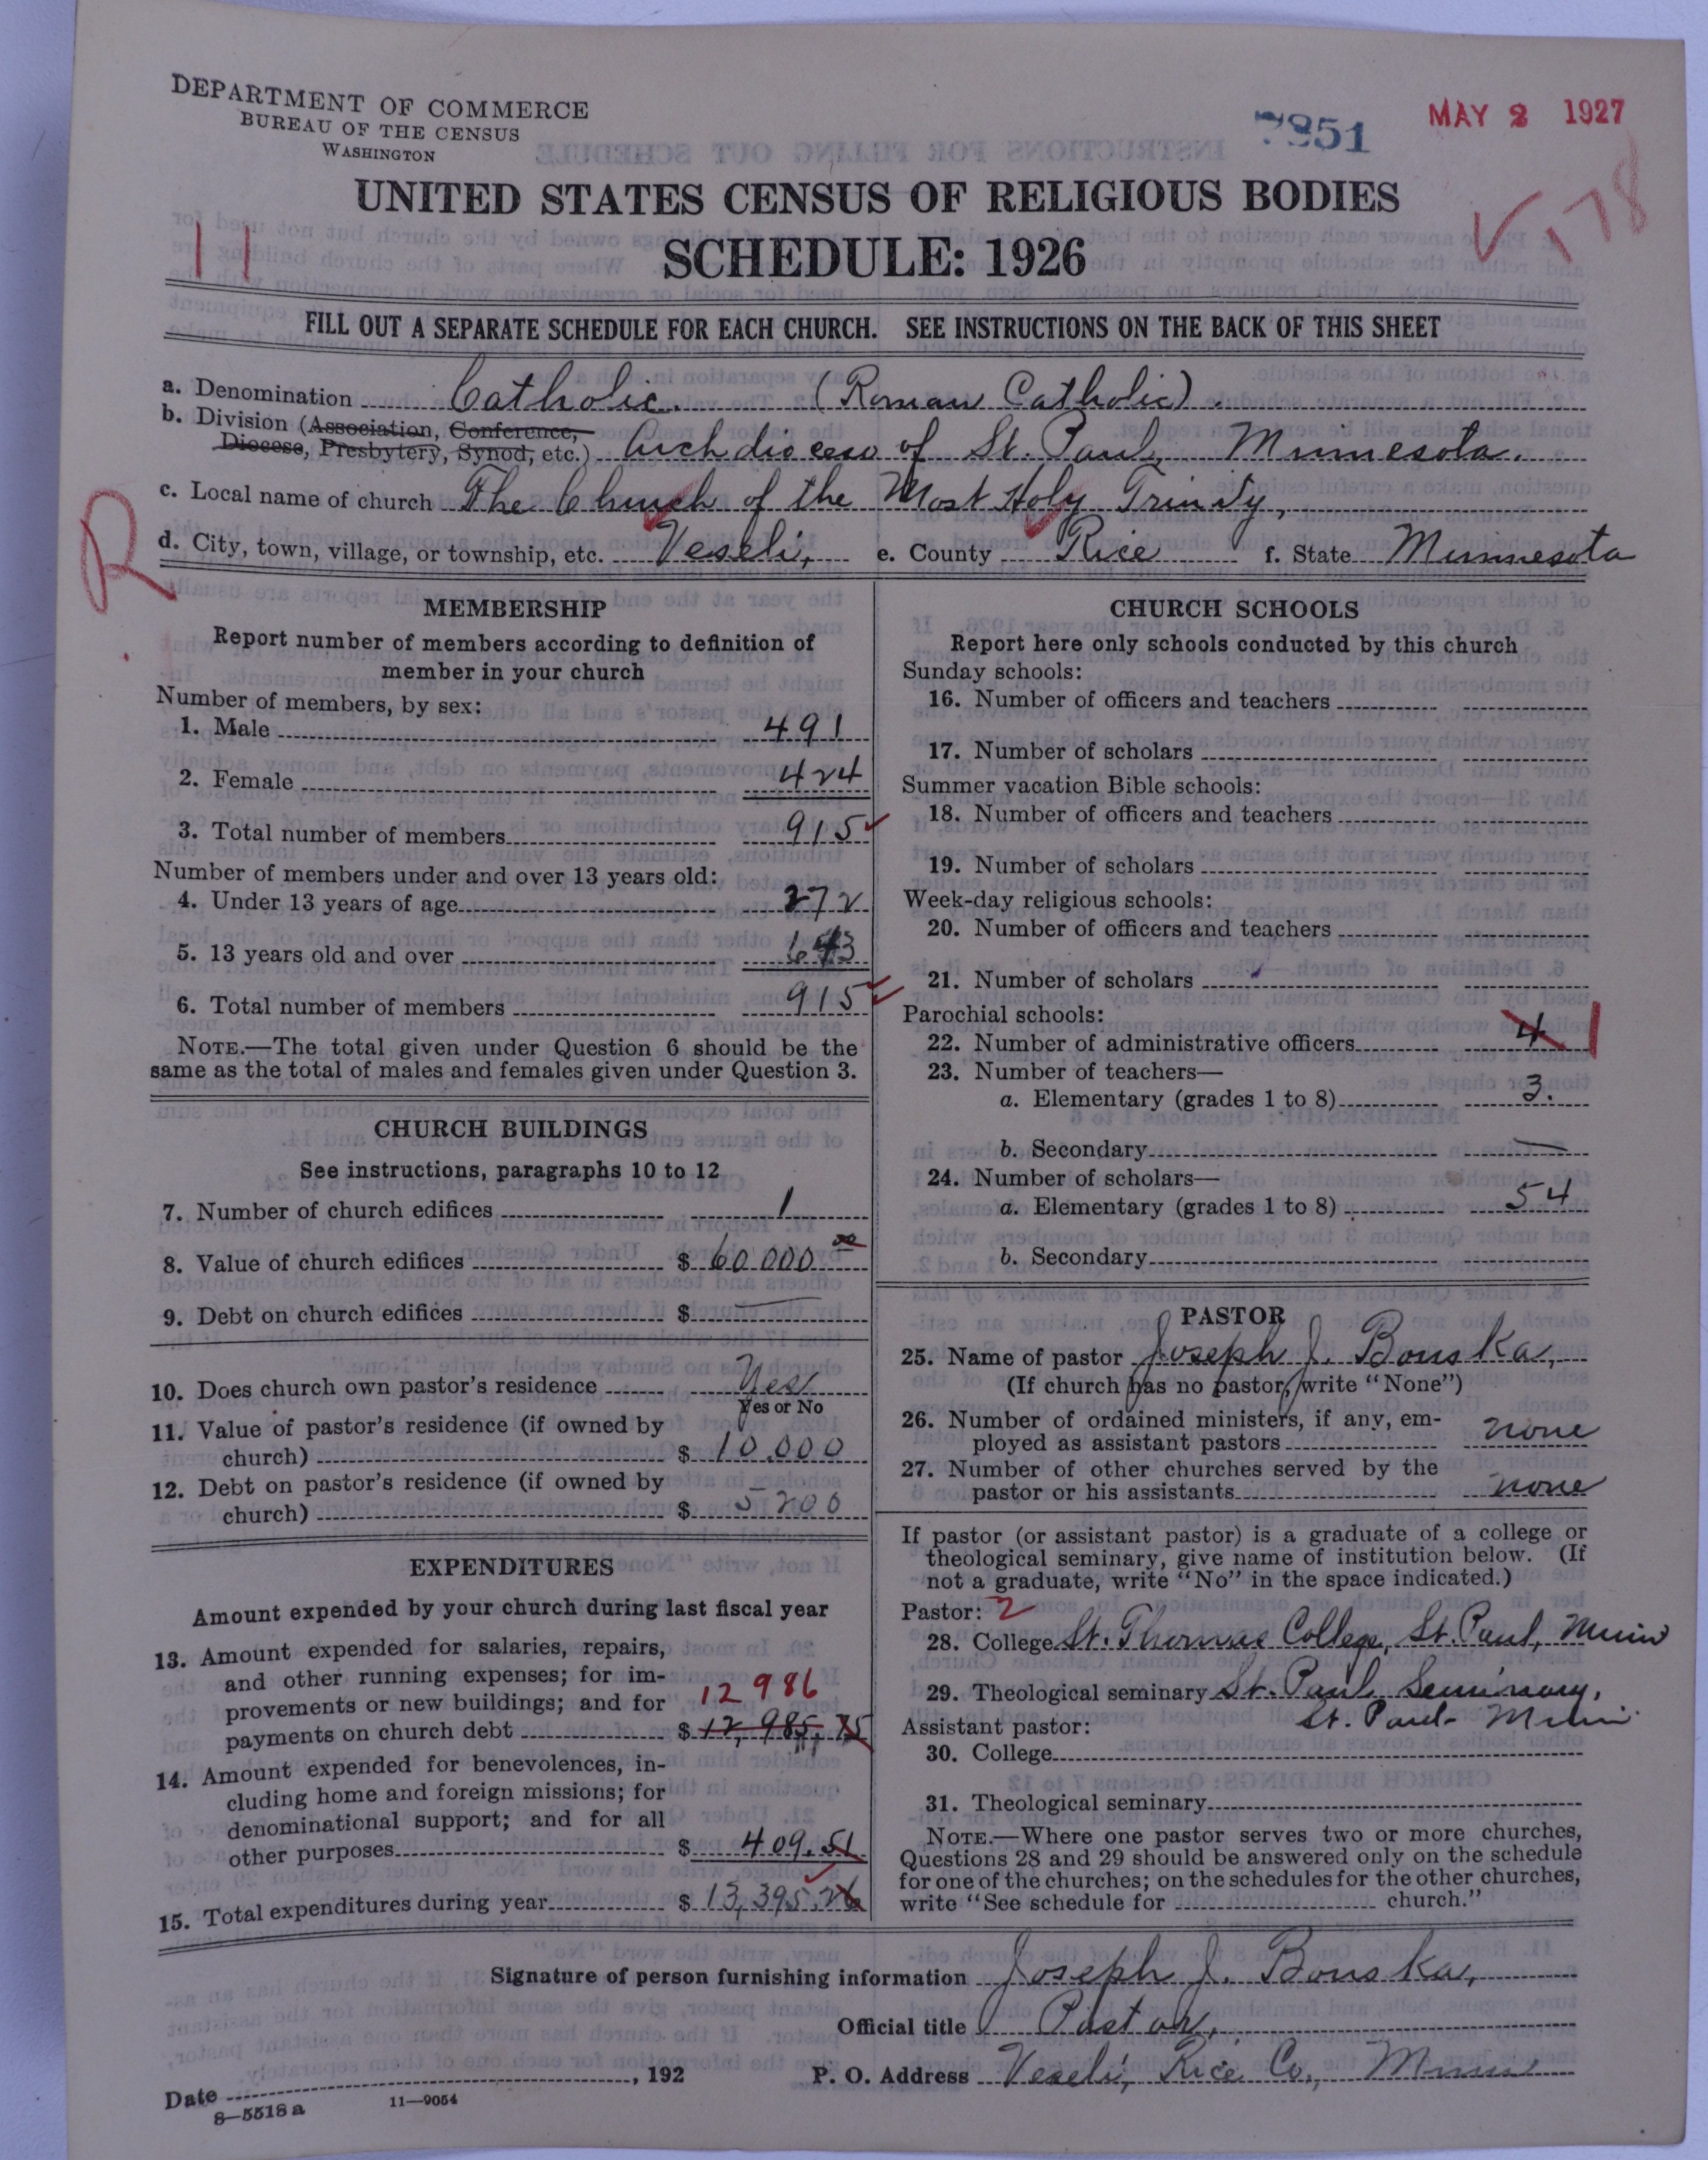 DEPARTMENT OF COMMERCE
BUREAU OF THE CENSUS
WASHINGTON
7851
MAY 2 1927
UNITED STATES CENSUS OF RELIGIOUS BODIES
SCHEDULE: 1926
11
178
FILL OUT A SEPARATE SCHEDULE FOR EACH CHURCH. SEE INSTRUCTIONS ON THE BACK OF THIS SHEET
a. Denomination Catholic. (Roman Catholic).
b. Division (Association, Conference, Diocese, Presbytery, Synod, etc.) Archdiocese of St. Paul, Minnesota.
c. Local name of church The Church of the Most Holy Trinity,
R
d. City, town, village, or township, etc. Veseli, e. County Rice f. State Minnesota
MEMBERSHIP
Report number of members according to definition of
member in your church
Number of members, by sex:
1. Male 491
2. Female 424
3. Total number of members 915
Number of members under and over 13 years old:
4. Under 13 years of age 272
5. 13 years old and over 643
6. Total number of members 915
NOTE.—The total given under Question 6 should be the
same as the total of males and females given under Question 3.
CHURCH BUILDINGS
See instructions, paragraphs 10 to 12
7. Number of church edifices 1
8. Value of church edifices $ 60 000 00
9. Debt on church edifices $ —
10. Does church own pastor's residence Yes
Yes or No
11. Value of pastor's residence (if owned by
church) $ 10.000
12. Debt on pastor's residence (if owned by
church) $ 5200
EXPENDITURES
Amount expended by your church during last fiscal year
13. Amount expended for salaries, repairs,
and other running expenses; for im-
provements or new buildings; and for
12 986
payments on church debt $ 12,985,75
14. Amount expended for benevolences, in-
cluding home and foreign missions; for
denominational support; and for all
other purposes $ 409.51
15. Total expenditures during year $ 13,395.26
CHURCH SCHOOLS
Report here only schools conducted by this church
Sunday schools:
16. Number of officers and teachers
17. Number of scholars
Summer vacation Bible schools:
18. Number of officers and teachers
19. Number of scholars
Week-day religious schools:
20. Number of officers and teachers
21. Number of scholars
Parochial schools:
22. Number of administrative officers 4 1
23. Number of teachers—
a. Elementary (grades 1 to 8) 3.
b. Secondary —
24. Number of scholars—
a. Elementary (grades 1 to 8) 54
b. Secondary
PASTOR
25. Name of pastor Joseph J. Bouska,
(If church has no pastor, write "None")
26. Number of ordained ministers, if any, em-
ployed as assistant pastors none
27. Number of other churches served by the
pastor or his assistants none
If pastor (or assistant pastor) is a graduate of a college or
theological seminary, give name of institution below. (If
not a graduate, write "No" in the space indicated.)
Pastor: 2
28. College St. Thomas College, St. Paul, Minn
29. Theological seminary St. Paul Seminary,
Assistant pastor: St. Paul - Minn.
30. College
31. Theological seminary
NOTE.—Where one pastor serves two or more churches,
Questions 28 and 29 should be answered only on the schedule
for one of the churches; on the schedules for the other churches,
write "See schedule for church."
Signature of person furnishing information Joseph J. Bouska,
Official title Pastor,
Date , 192 P. O. Address Veseli, Rice Co., Minn
8—5518 a 11—9054